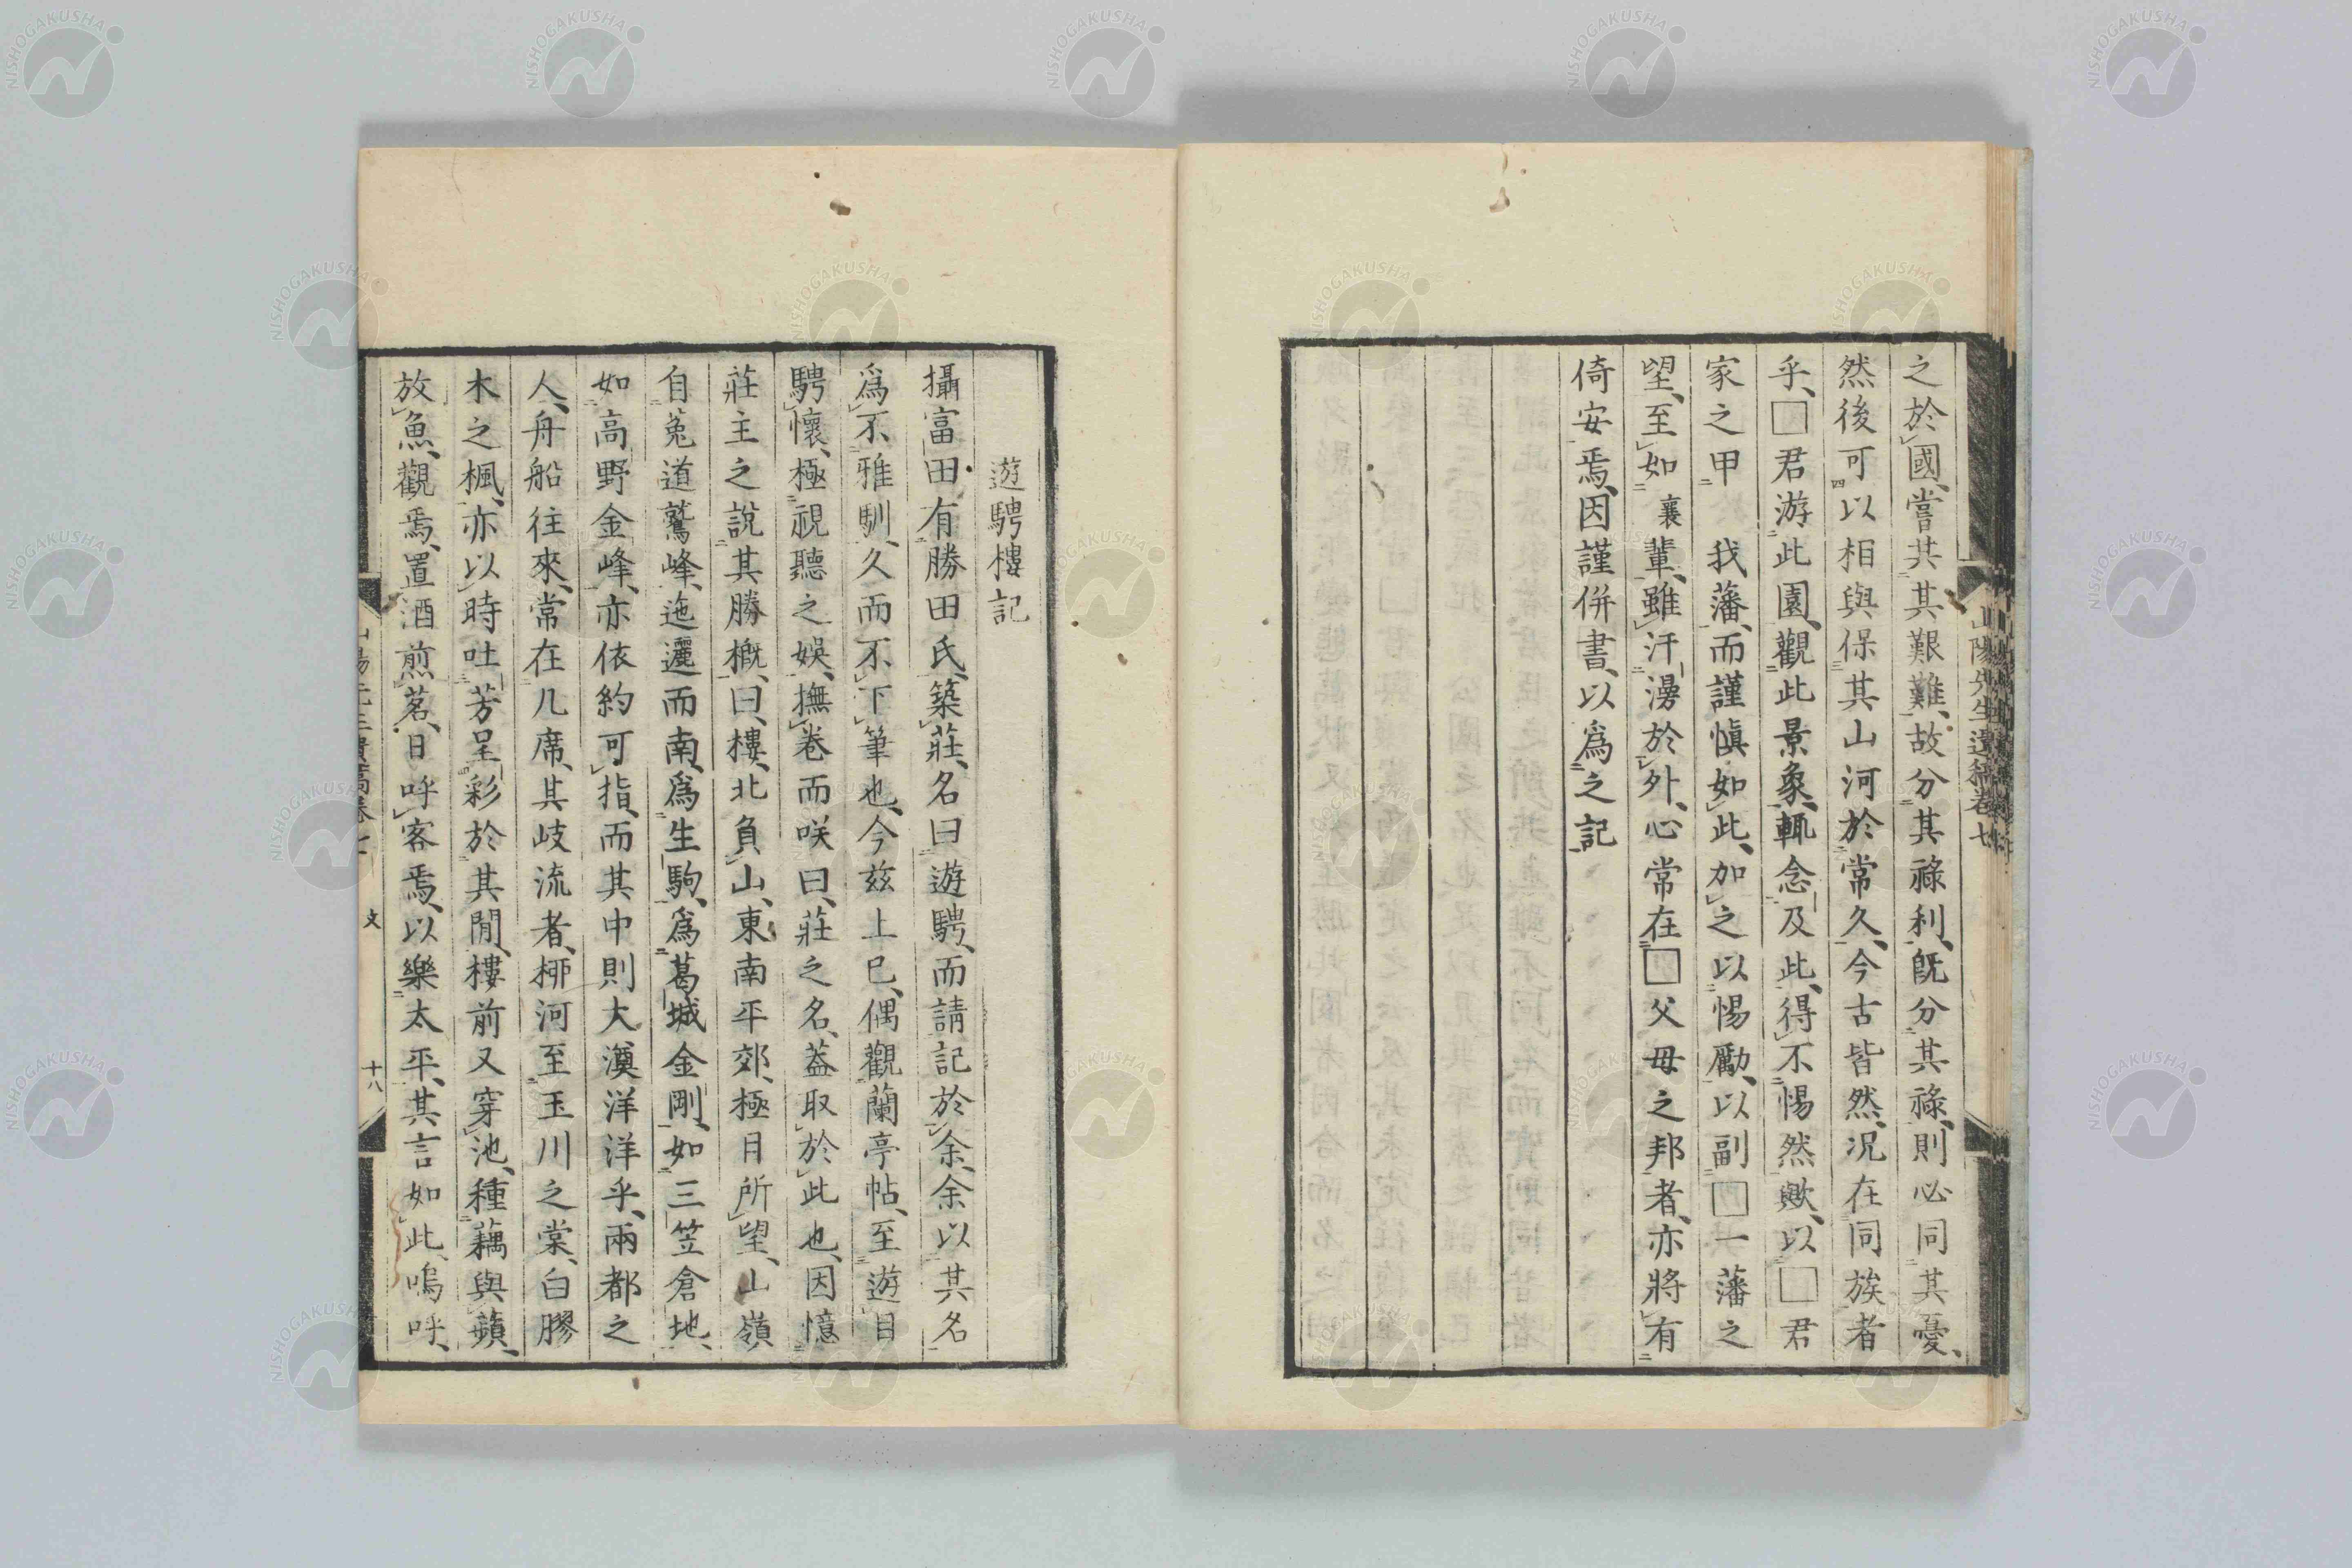 之於國、嘗共其艱難、故分其祿利、既分其祿、則必同其憂、
然後可以相與保其山河於常久、今古皆然、況在同族者
乎、□君游此園、觀此景象、輒念及此、得不惕然歟、以□君
家之甲 我藩、而謹愼如此、加之以惕勵、以副□一藩之
望、至如襄輩、雖汗漫於外、心常在□父母之邦者、亦將有
倚安焉、因謹併書、以爲之記
遊騁樓記
攝富田有勝田氏、築莊、名曰遊騁、而請記於余、余以其名
爲不雅馴、久而不下筆也、今茲上巳、偶觀蘭亭帖、至遊目
騁懷、極視聽之娛、撫卷而咲曰、莊之名、蓋取於此也、因憶
莊主之說其勝概、曰、樓北負山、東南平郊、極目所望、山嶺
自菟道鷲峰、迤邐而南、爲生駒、爲葛城金剛、如三笠倉地、
如高野金峰、亦依約可指、而其中則大漠洋洋乎、兩都之
人、舟船往來、常在几席、其岐流者、桺河至玉川之棠、白膠
木之楓、亦以時吐芳呈彩於其間、樓前又穿池、種藕與蘋、
放魚觀焉、置酒煎茗、日呼客焉、以樂太平、其言如此、嗚呼、
山陽先生遺稿卷七
文
十八
NISHOGAKUSHA